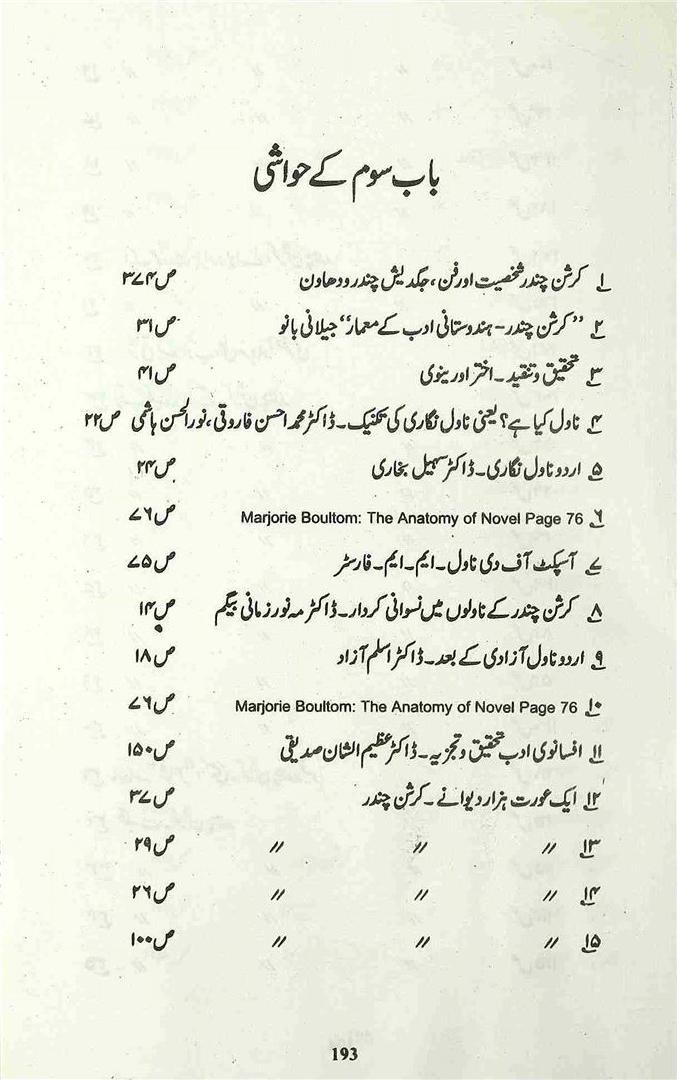 باب سوم کے حواشی
۱ کرشن چندر شخصیت اور فن، جگدیش چندر ودھاون ص ۳۷۴
۲ ”کرشن چندر - ہندوستانی ادب کے معمار“ جیلانی بانو ص ۳۱
۳ تحقیق و تنقید ۔ اختر اورینوی ص ۴۱
۴ ناول کیا ہے؟ یعنی ناول نگاری کی تکنیک ۔ ڈاکٹر محمد احسن فاروقی، نور الحسن ہاشمی ص ۲۲
۵ اردو ناول نگاری ۔ ڈاکٹر سہیل بخاری ص ۲۴
۶ Marjorie Boultom: The Anatomy of Novel Page 76 ص ۷۶
۷ آسپکٹ آف دی ناول ۔ ایم ۔ ایم ۔ فارسٹر ص ۷۵
۸ کرشن چندر کے ناولوں میں نسوانی کردار ۔ ڈاکٹر مہ نور زمانی بیگم ص ۱۴
۹ اردو ناول آزادی کے بعد ۔ ڈاکٹر اسلم آزاد ص ۱۸
۱۰ Marjorie Boultom: The Anatomy of Novel Page 76 ص ۷۶
۱۱ افسانوی ادب تحقیق و تجزیہ ۔ ڈاکٹر عظیم الشان صدیقی ص ۱۵۰
۱۲ ایک عورت ہزار دیوانے ۔ کرشن چندر ص ۳۷
۱۳ // // // ص ۲۹
۱۴ // // // ص ۲۶
۱۵ // // // ص ۱۰۰
193